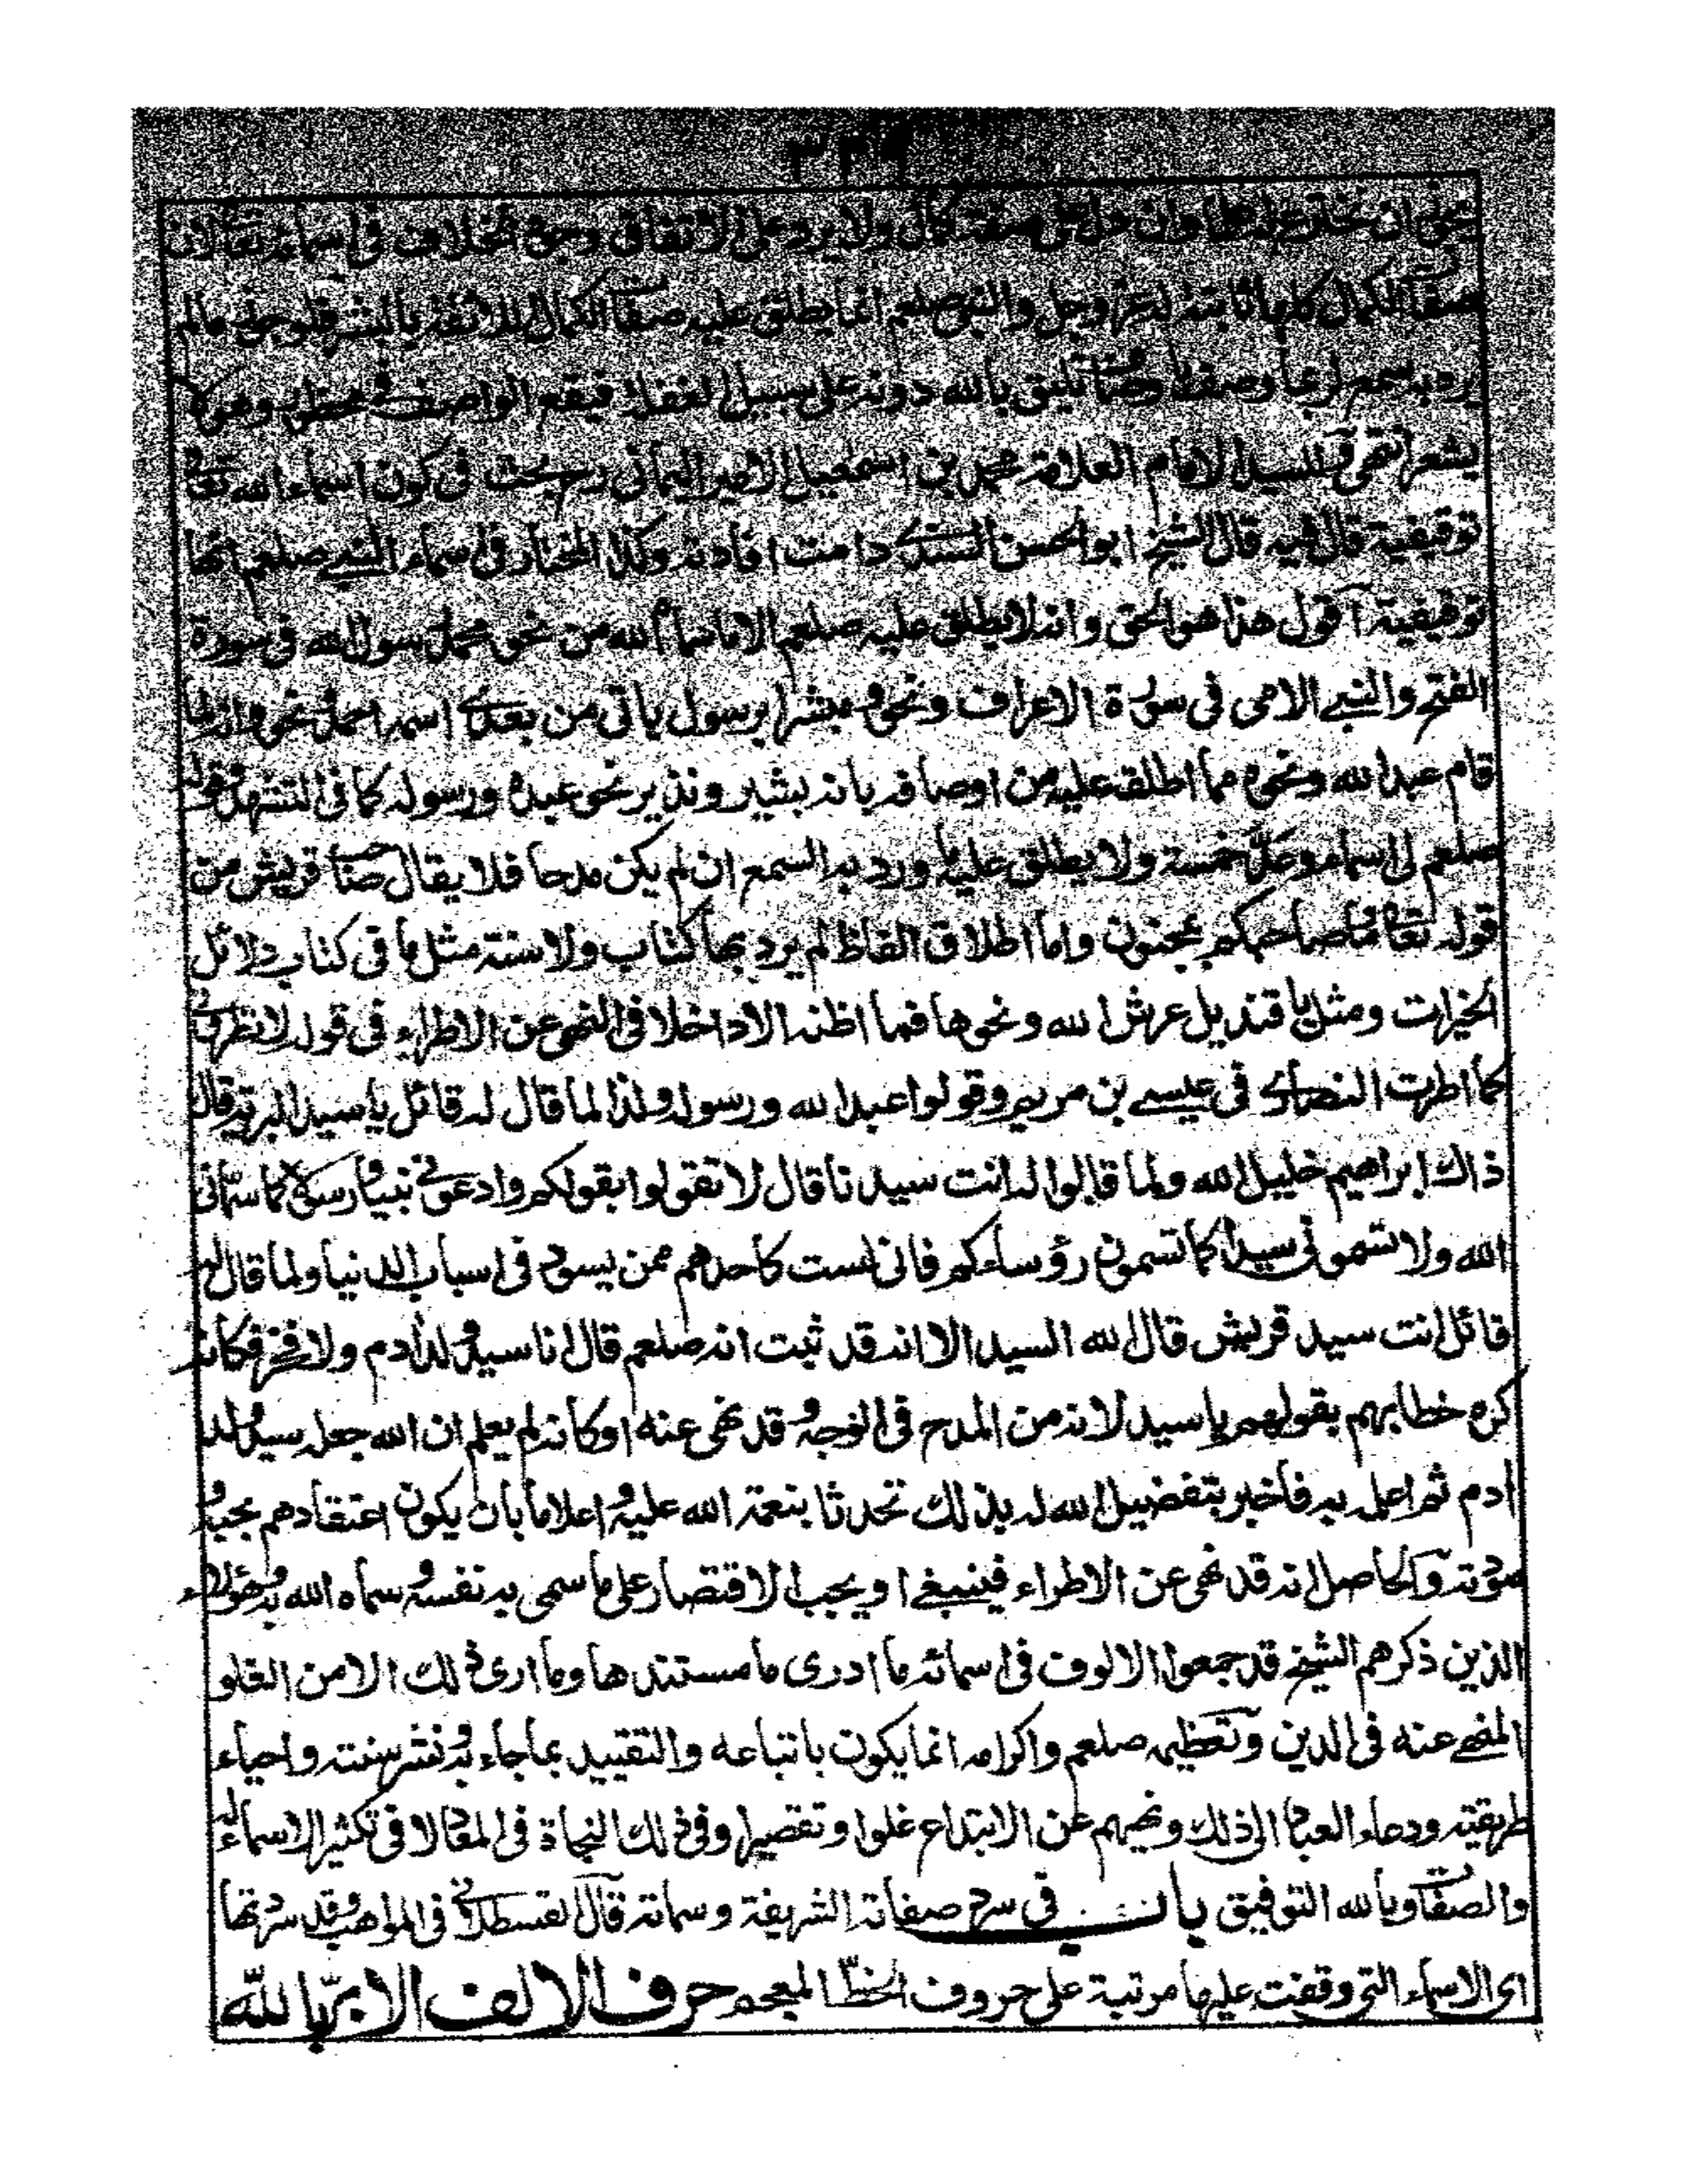 ٣٣٩
ان وان دل على صفة كمال ولا يرد على الاتفاق وجود الخلاف فى اسمائه تعالى لان
صفات الكمال كلها ثابتة له عز وجل والنبى صلعم انما يطلق عليه صفات الكمال اللائقة بالبشر فلو جوز مالم
يرد به سمع لربما وصف باوصاف تليق بالله دونه على سبيل الغفلة فيقع الواصف فى محظور وهو لا
يشعر انتهى وللسيد الامام العلامة محمد بن اسمعيل الامير اليمانى رح بحث فى كون اسماء الله تعالى
توقيفية قال فيه قال الشيخ ابو الحسن السندى دامت افادته وكذا المختار فى اسماء النبى صلعم انها
توقيفية اقول هذا هو الحق وانه لا يطلق عليه صلعم الا ما سماه الله من نحو محمد رسول الله فى سورة
الفتح والنبى الامى فى سورة الاعراف ونحو ومبشرا برسول ياتى من بعدى اسمه احمد ونحو وانه لما
قام عبد الله ونحوه مما اطلق عليه من اوصافه بانه بشير ونذير نحو عبده ورسوله كما فى التشهد وقوله
صلعم لى اسماء وعد خمسة ولا يطلق عليه ما ورد به السمع ان لم يكن مدحا فلا يقال صاحب قريش من
قوله تعالى ما صاحبكم بمجنون واما اطلاق الفاظ لم يرد بها كتاب ولا سنة مثل ما فى كتاب دلائل
الخيرات ومثل يا قنديل عرش الله ونحوها فما اظنه الا داخلا فى النهى عن الاطراء فى قوله لا تطرونى
كما اطرت النصارى فى عيسى بن مريم وقولوا عبد الله ورسوله ولذا لما قال له قائل يا سيد البرية قال
ذاك ابراهيم خليل الله ولما قالوا له انت سيدنا قال لا تقولوا بقولكم وادعونى نبيا ورسولا كما سمانى
الله ولا تسمونى سيدا كما تسمون رؤساءكم فانى لست كاحدهم ممن يسود فى اسباب الدنيا ولما قال له
قائل انت سيد قريش قال الله السيد الا انه قد ثبت انه صلعم قال انا سيد ولد ادم ولا فخر فكانه
كره خطابهم بقولهم يا سيد لانه من المدح فى الوجه وقد نهى عنه او كانه لم يعلم ان الله جعله سيد ولد
ادم ثم اعلم به فاخبر بتفضيل الله له بذلك تحدثا بنعمة الله عليه واعلاما بان يكون اعتقادهم بحبه و
سودته والحاصل انه قد نهى عن الاطراء فينبغى او يجب الاقتصار على ما سمى به نفسه وسماه الله به وهؤلاء
الذين ذكرهم الشيخ قد جمعوا الالوف فى اسمائه ما ادرى ما مستندها وما ارى ذلك الا من الغلو
المنهى عنه فى الدين وتعظيمه صلعم واكرامه انما يكون باتباعه والتقييد بما جاء به ونشر سنته واحياء
طريقته ودعاء العباد الى ذلك ونهيهم عن الابتداع غلوا وتقصيرا وفى ذلك النجاة فى المعاد لا فى تكثير الاسماء له
والصفات وبالله التوفيق باب فى سرد صفاته الشريفة وسماته قال القسطلانى فى المواهب وقد سردتها
اى الاسماء التى وقفت عليها مرتبة على حروف المعجم حرف الالف الابر بالله